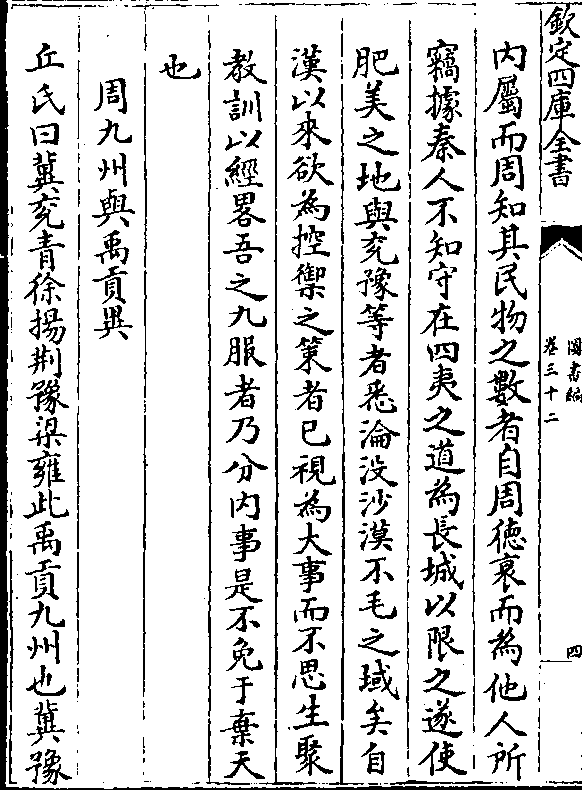 欽定四庫全書
圖書編
卷三十二
四
内屬而周知其民物之數者自周徳衰而為他人所
竊據秦人不知守在四夷之道為長城以限之遂使
肥美之地與兖豫等者悉淪没沙漠不毛之域矣自
漢以來欲為控禦之策者已視為大事而不思生聚
教訓以經畧吾之九服者乃分内事是不免于棄天
也
周九州與禹貢異
丘氏曰冀兖青徐揚荆豫梁雍此禹貢九州也冀豫